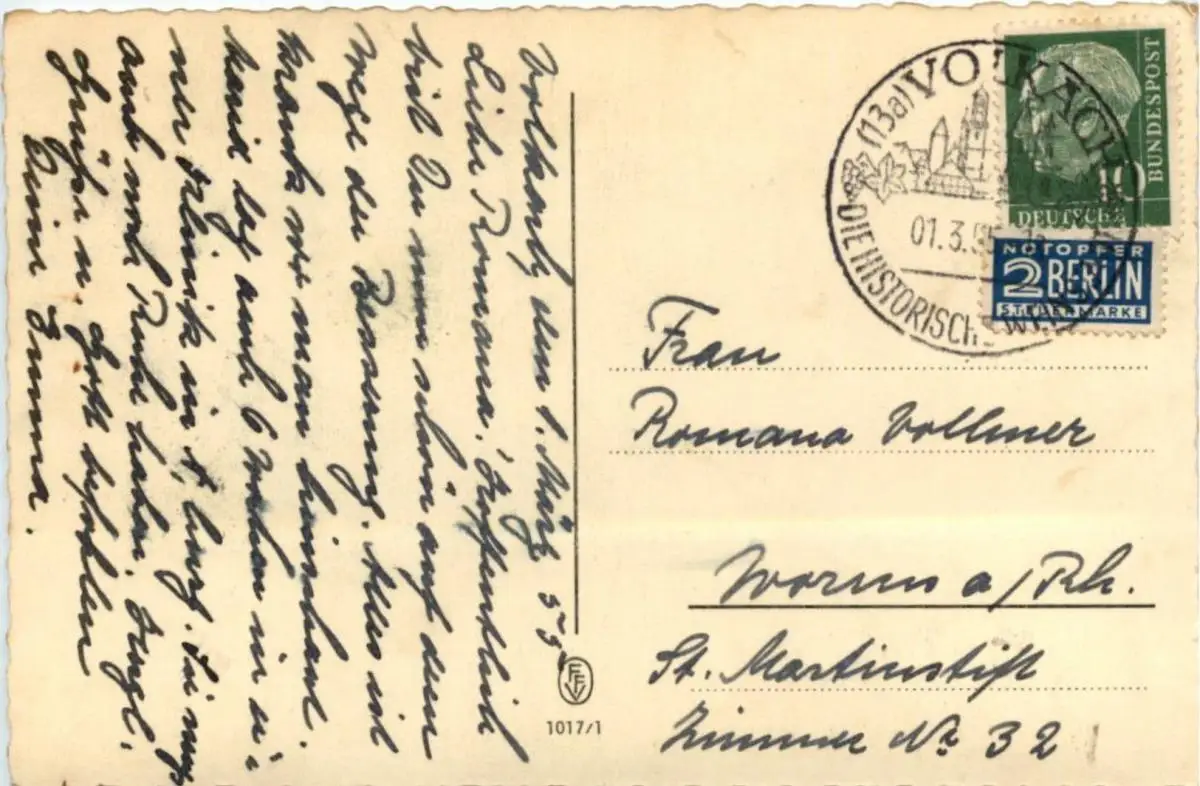 Volkach, den 1. März 55
Liebe Romana! Hoffentlich
bist Du nun schon auf dem
Wege der Besserung. Alles ist
krank wo man hinschaut.
lag auch 6 Wochen in
der Klinik in Sie muß
auch noch Ruhe haben. Hrzl.
Grüße u. Gott befohlen
Deine Emma.
Frau
Romana Vollmer
Worms a/Rh.
St. Martinstift
Zimmer No 32
(13a) VOLKACH
01.3.5
DIE HISTORISCHE
10
DEUTSCHE
BUNDESPOST
NOTOPFER
2 BERLIN
STEUERMARKE
FF
1017/1